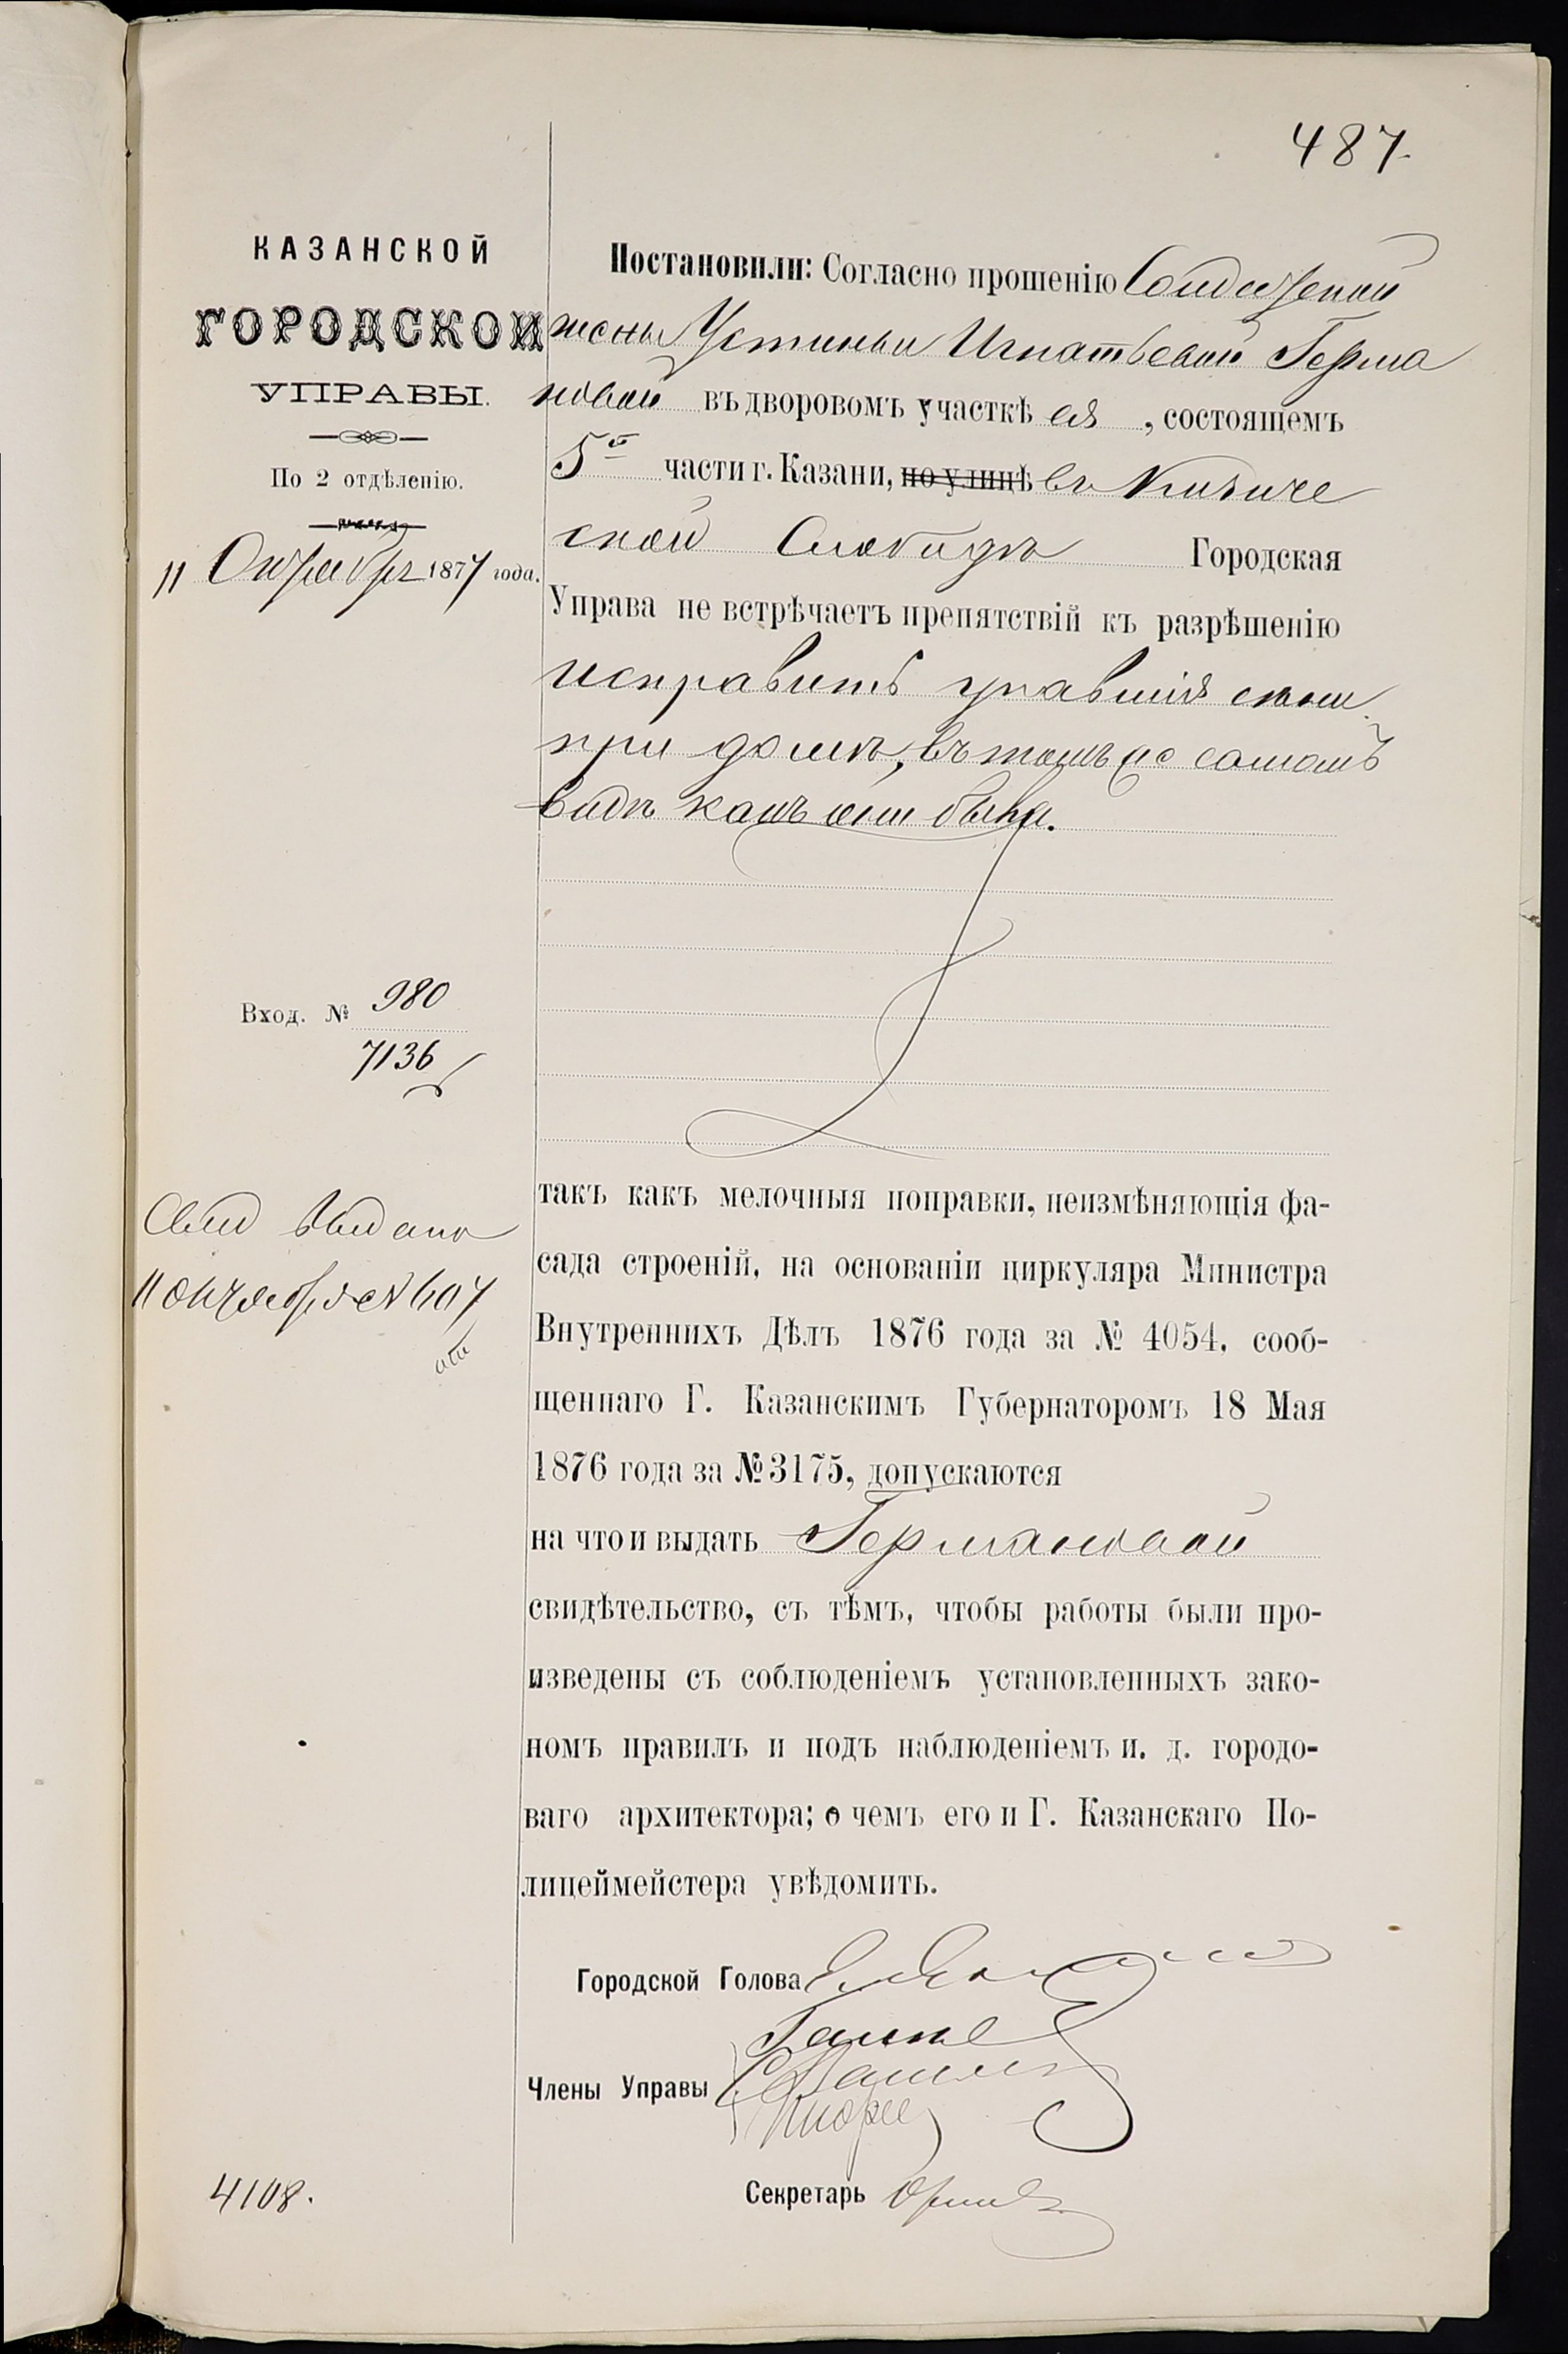 487.
КАЗАНСКОЙ
ГОРОДСКОЙ
УПРАВЫ.
По 2 отдѣленію.
11 Октября 1877 года.
Вход. № 980
7136
Свид выдано
11 октября № 607
4108.
Постановили: Согласно прошенію Солдатской
жены Устиньи Игнатьевой Герма
новой въ дворовомъ участкѣ ея, состоящемъ
5й части г. Казани, по улицѣ въ Кизиче
ской Слободѣ Городская
Управа не встрѣчаетъ препятствій къ разрѣшенію
исправить упавшія сѣни
при домѣ, въ томъ же самомъ
видѣ какъ они были.
такъ какъ мелочныя поправки, неизмѣняющія фа-
сада строеній, на основаніи циркуляра Министра
Внутреннихъ Дѣлъ 1876 года за № 4054, сооб-
щеннаго Г. Казанскимъ Губернаторомъ 18 Мая
1876 года за № 3175, допускаются
на что и выдать Германовой
свидѣтельство, съ тѣмъ, чтобы работы были про-
изведены съ соблюденіемъ установленныхъ зако-
номъ правилъ и подъ наблюденіемъ и. д. городо-
ваго архитектора; о чемъ его и Г. Казанскаго По-
лицеймейстера увѣдомить.
Городской Голова
Члены Управы
Секретарь